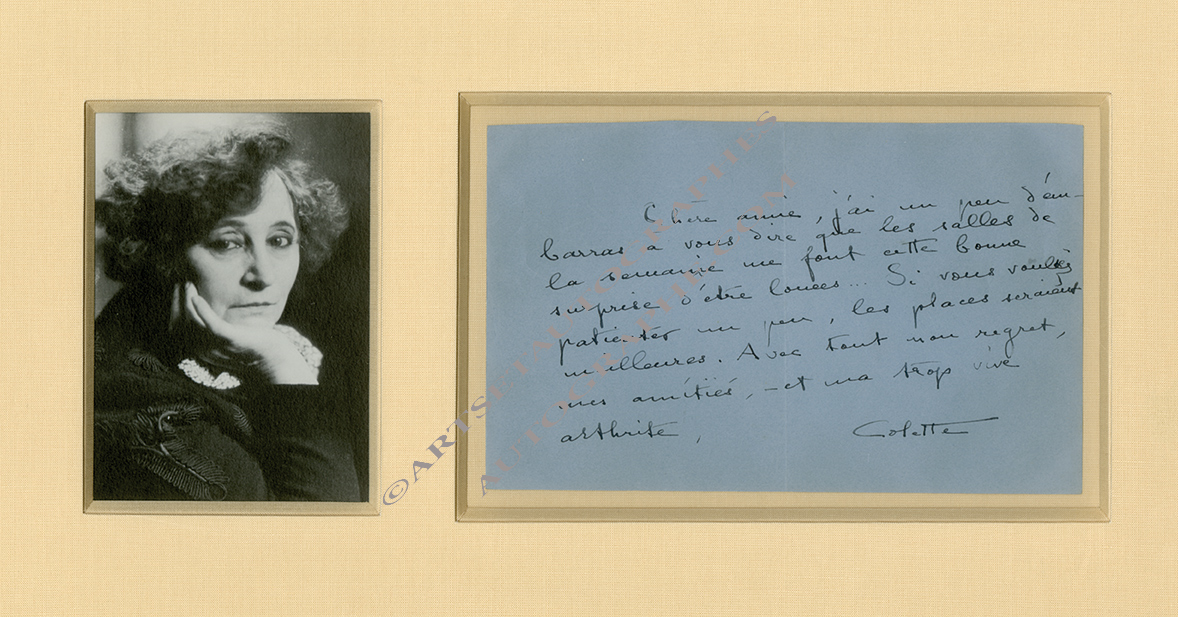 Chère amie, j'ai un peu d'em-
barras à vous dire que les salles de
la semaine me font cette bonne
surprise d'être louées... Si vous voulez
patienter un peu, les places seraient
meilleures. Avec tout mon regret,
mes amitiés, - et ma trop vive
arthrite,
Colette
©ARTSETAUTOGRAPHES
AUTOGRAPHES.COM